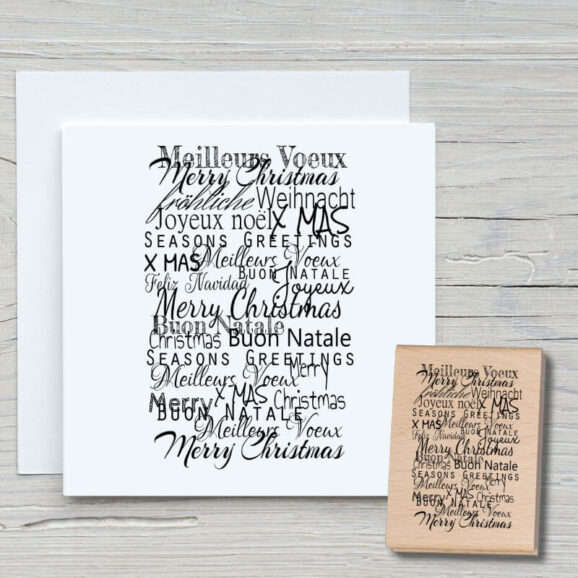 Meilleurs Voeux
Merry Christmas
fröhliche Weihnacht
Joyeux noël X MAS
SEASONS GREETINGS
X MAS Meilleurs Voeux
BUON NATALE
Feliz Navidad Joyeux
Merry Christmas
Buon Natale
Christmas Buon Natale
SEASONS GREETINGS
Merry
Meilleurs Voeux
X MAS
Merry Christmas
BUON NATALE
Meilleurs Voeux
Merry Christmas
Meilleurs Voeux
Merry Christmas
fröhliche Weihnacht
Joyeux noël X MAS
SEASONS GREETINGS
X MAS Meilleurs Voeux
BUON NATALE
Feliz Navidad Joyeux
Merry Christmas
Buon Natale
Christmas Buon Natale
SEASONS GREETINGS
Merry
Meilleurs Voeux
X MAS
Merry Christmas
BUON NATALE
Meilleurs Voeux
Merry Christmas